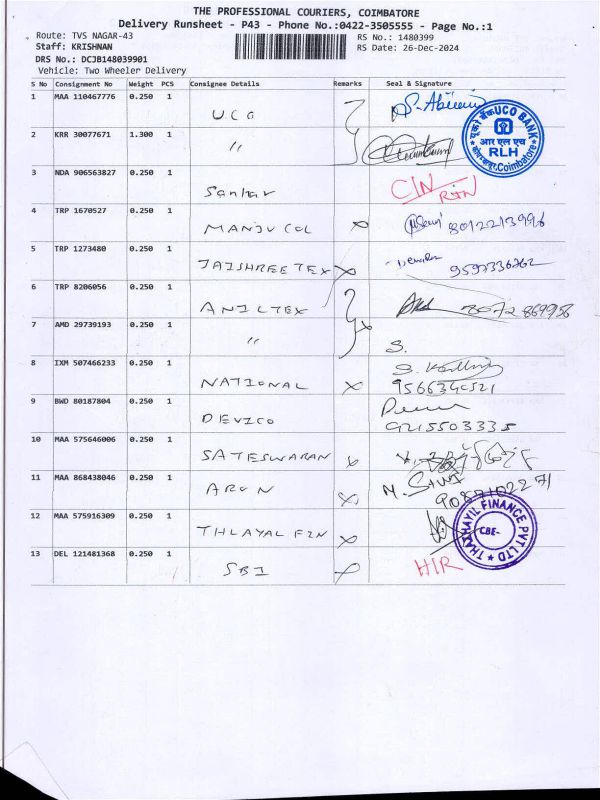 THE PROFESSIONAL COURIERS, COIMBATORE
Delivery Runsheet - P43 - Phone No.:0422-3505555 - Page No.:1
Route: TVS NAGAR-43 RS No.: 1480399
Staff: KRISHNAN RS Date: 26-Dec-2024
DRS No.: DCJB148039901
Vehicle: Two Wheeler Delivery
S No Consignment No Weight PCS Consignee Details Remarks Seal & Signature
1 MAA 110467776 0.250 1 UCO
2 KRR 30077671 1.300 1 〃
UCO BANK
आर एल एच
RLH
Coimbatore
3 NDA 906563827 0.250 1 Sankar CIN
4 TRP 1670527 0.250 1 MANJU COL 8012213996
5 TRP 1273480 0.250 1 JAISHREE TEX 9597336262
6 TRP 8206056 0.250 1 ANILTEX
7 AMD 29739193 0.250 1 〃 S.
8 IXM 507466233 0.250 1 NATIONAL
9 BWD 80187804 0.250 1 DEVICO 9215503335
10 MAA 575646006 0.250 1 SATESWARAN
11 MAA 868438046 0.250 1 ARUN
12 MAA 575916309 0.250 1 THLAYAL FIN
THATHAYIL FINANCE PVT LTD
CBE-
13 DEL 121481368 0.250 1 SBI HIR